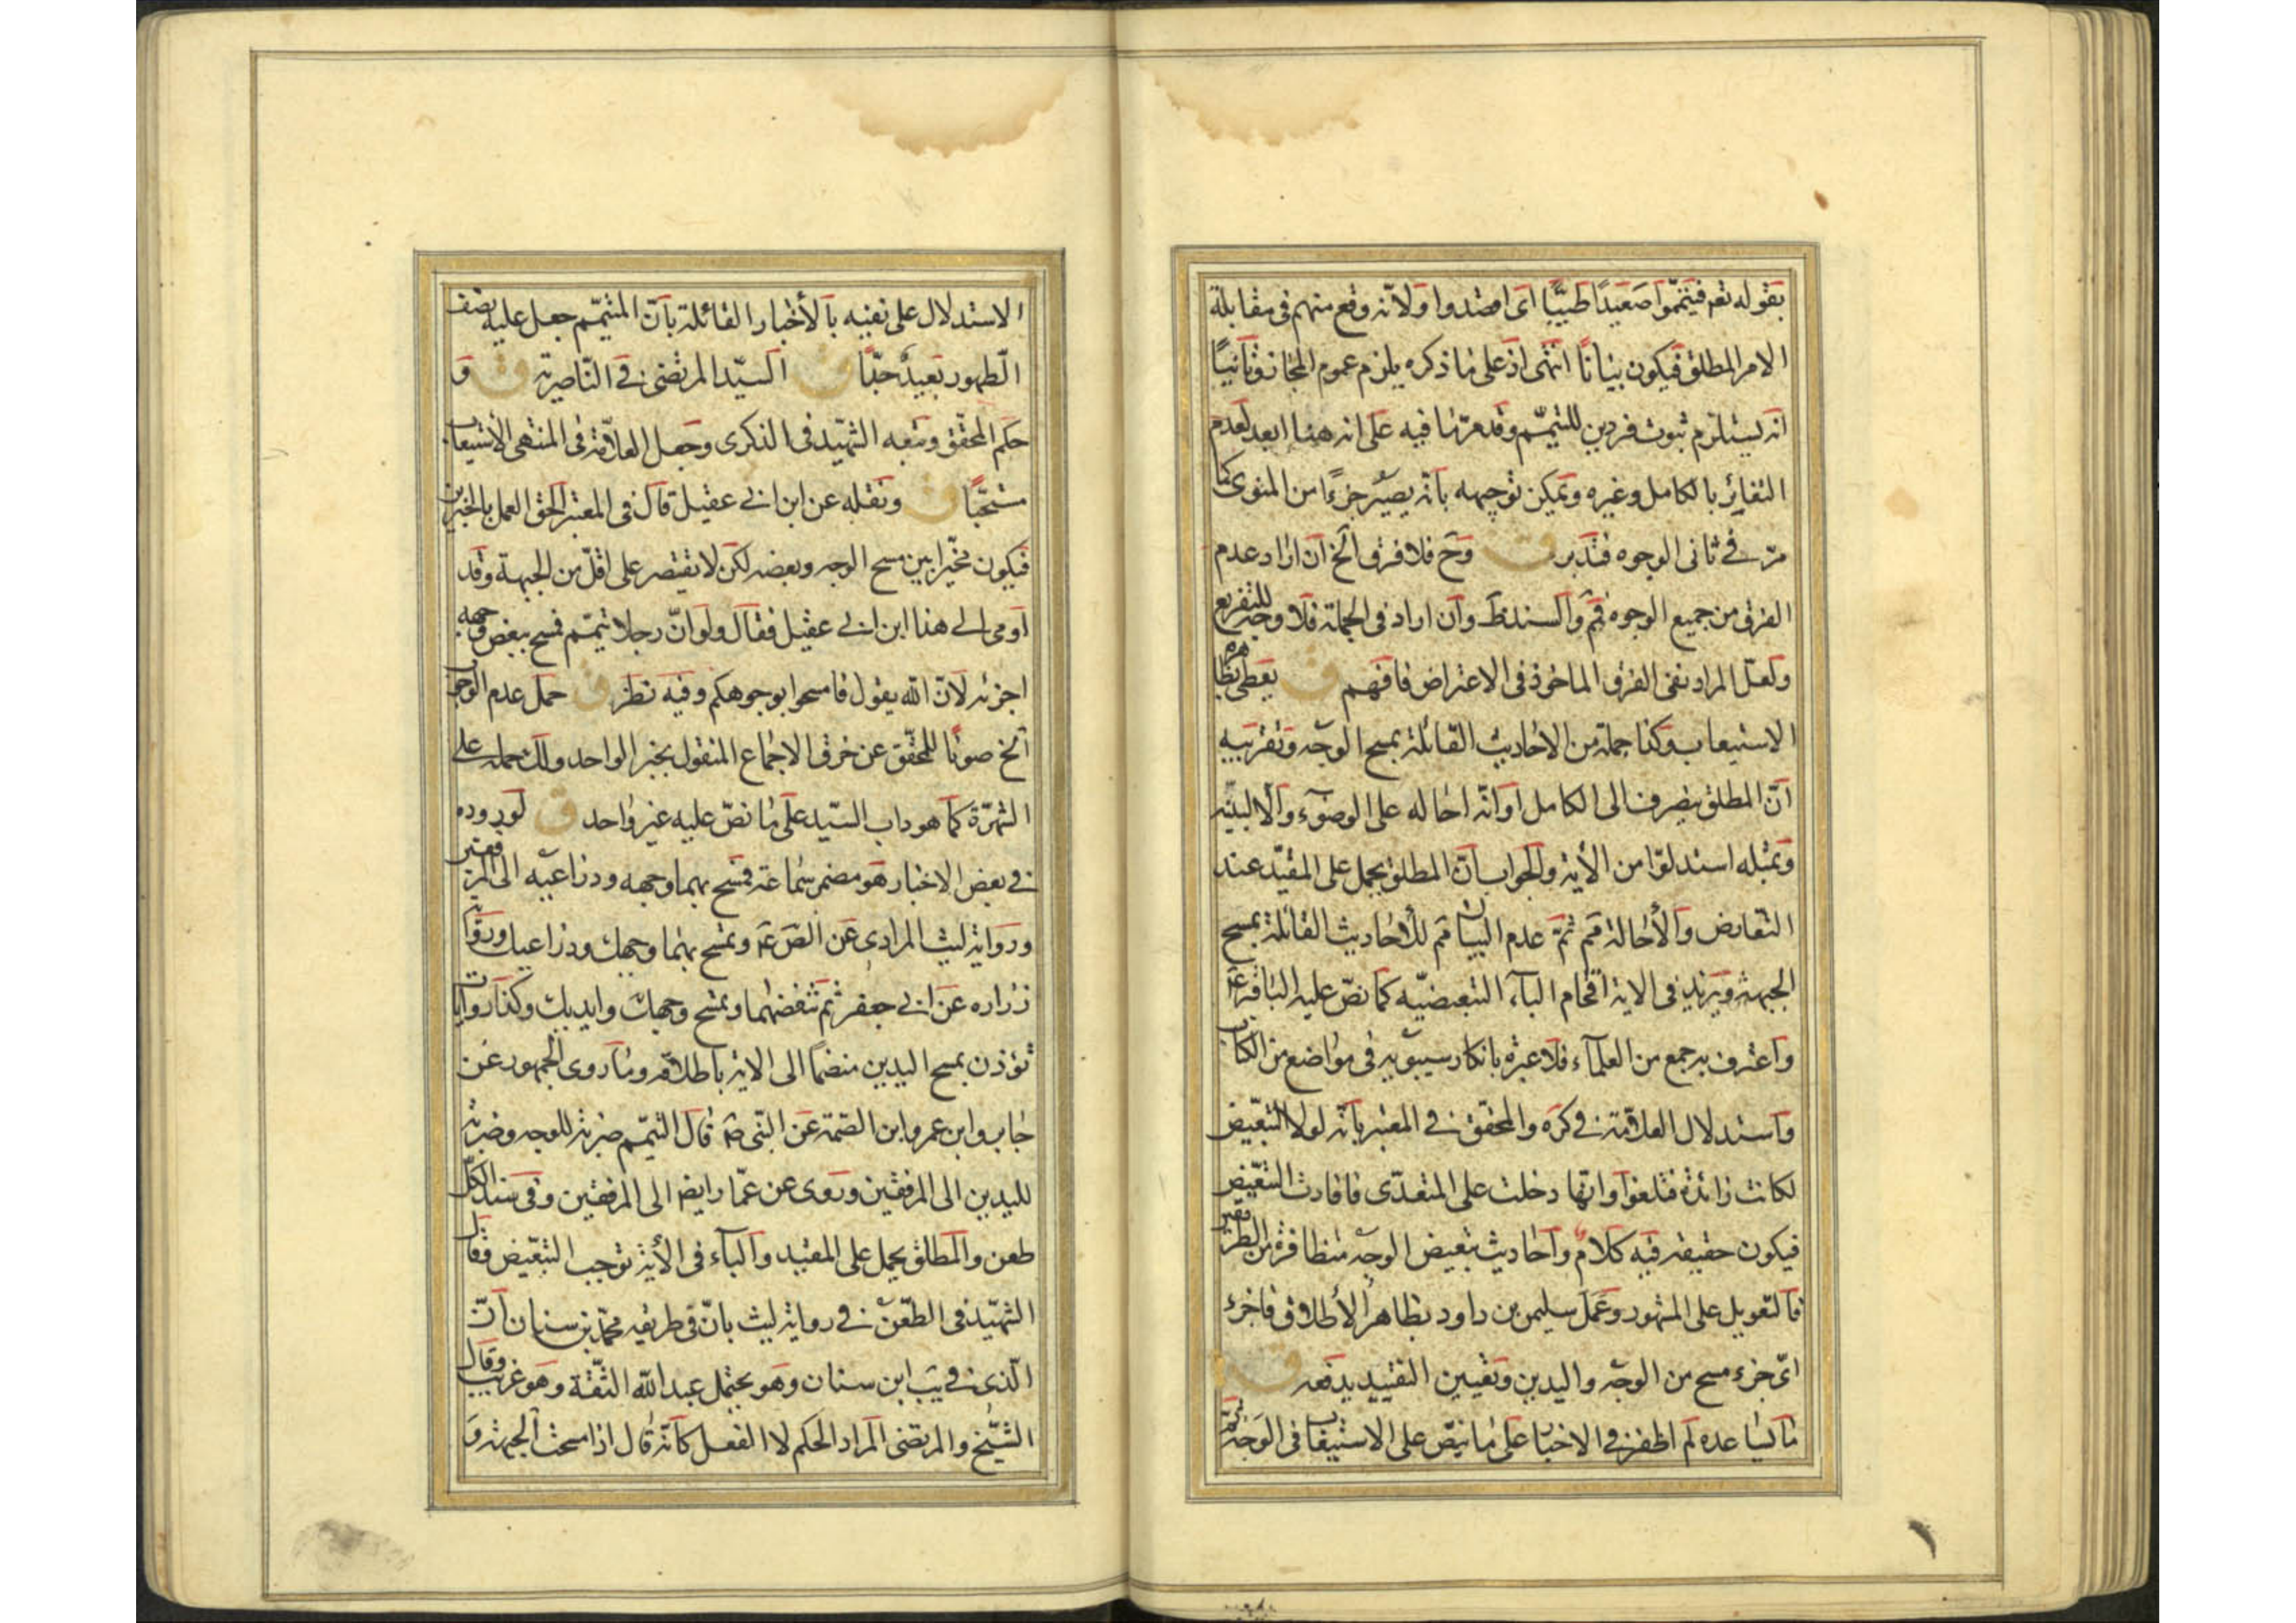 بقوله تعم فتيمّموا صعيدًا طيّبًا اى اقصدوا ولانّه وقع منهم فى مقابلة
الامر المطلق فيكون بيانًا انتهى اذ على ما ذكره يلزم عموم المجاز وثانيًا
انه يستلزم ثبوت فردين للتيمّم وقد مرّ ما فيه على انه هنا ابعد لعدم
التغاير بالكامل وغيره ويمكن توجيهه بانّه يصير جزءًا من المنوى كما
مرّ فى ثانى الوجوه فتدبر ق وح فلا فرق الخ ان اراد عدم
الفرق من جميع الوجوه فم والسند ظ وان اراد فى الجملة فلا وجه للتفريع
ولعلّ المراد نفى الفرق الماخوذ فى الاعتراض فافهم ق يعطى بظاهره
الاستيعاب وكذا جملة من الاحاديث القائلة بمسح الوجه وتقريبه
انّ المطلق ينصرف الى الكامل او انّه احاله على الوضوء والا لبيّنه
وبمثله استدلوا من الآية والجواب انّ المطلق يحمل على المقيّد عند
التعارض والأحالة فم ثمّ عدم البيان فم للأحاديث القائلة بمسح
الجبهة ويزيد فى الاية اقحام الباء التبعيضيّه كما نصّ عليه الباقر ع
واعترف به جمع من العلماء فلا عبرة بانكار سيبويه فى مواضع من الكتاب
واستدلال العلّامة فى كره والمحقّق فى المعتبر بانّه لولا التبعّيض
لكانت زائدة فتلغوا وانها دخلت على المتعدّى فافادت التبعّيض
فيكون حقيقة فيه كلام واحاديث تبعيض الوجه متظافرة من الطرفين
فالتعويل على المشهور وعمل سليمن بن داود بظاهر الأطلاق فاجزء
اىّ جزء مسح من الوجه واليدين وتعيين التقييد يدفعه ق
ما يساعده لم اظفر فى الاخبار على ما نصّ على الاستيعاب فى الوجه
الاستدلال على نفيه بالأخبار القائلة بانّ المتيمّم جعل عليه نصف
الّطهور بعيدٌ جدًّا ق السيّد المرتضى فى النّاصرية ق و
حكم المحقق وتبعه الشهيد فى الذكرى وجعل العلّامة فى المنتهى الأستيعاب
مستحبًّا ق ونقله عن ابن ابى عقيل قال فى المعتبر الحق العمل بالخبرين
فيكون مخيّرا بين مسح الوجه وبعضه لكن لا يقتصر على اقلّ من الجبهة وقد
اومى الى هذا ابن ابى عقيل فقال ولو انّ رجلا تيمّم فمسح ببعض وجهه
اجزئه لانّ الله يقول فامسحوا بوجوهكم وفيه نظر ق حمل عدم الوجوب
الخ صونًا للمحقّق عن خرق الاجماع المنقول بخبر الواحد ولك حمله على
الشهرة كما هو داب السّيد على ما نصّ عليه غير واحد ق لوروده
فى بعض الاخبار هو مضمر سماعة فمسح بهما وجهه وذراعيه الى المرفقين
ورواية ليث المرادى عن الصّ ع وتمسح بهما وجهك وذراعيك ورواية
زراره عن ابى جعفر ثم تنفضهما وتمسح وجهك ويديك وكذا روايات
تؤذن بمسح اليدين منضمًا الى الاية باطلاقه وما روى الجمهور عن
جابر وابن عمر وابن الصّمة عن النّبى ص قال التيمّم ضربة للوجه وضربة
لليدين الى المرفقين وروى عن عمّار ايضا الى المرفقين وفى سند الكلّ
طعن والمطلق يحمل على المقيد والباء فى الأية توجب التبعّيض فقال
الشهيد فى الطّعن فى رواية ليث بانّ فى طريقه محمّد بن سنان انّ
الّذى فى يب ابن سنان وهو يحتمل عبد الله الثّقة وهو غريب وقال
الشّيخ والمرتضى المراد الحكم لا الفعل كانّه قال اذا مسحت الجبهة و